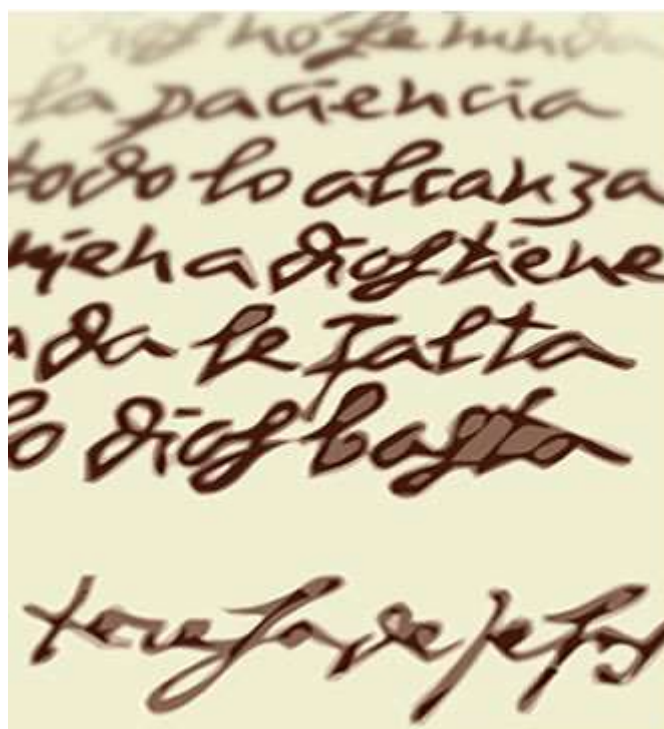 dios no se muda
la paciencia
todo lo alcanza
uien a dios tiene
ada le falta
lo dios basta
teresa de jesus